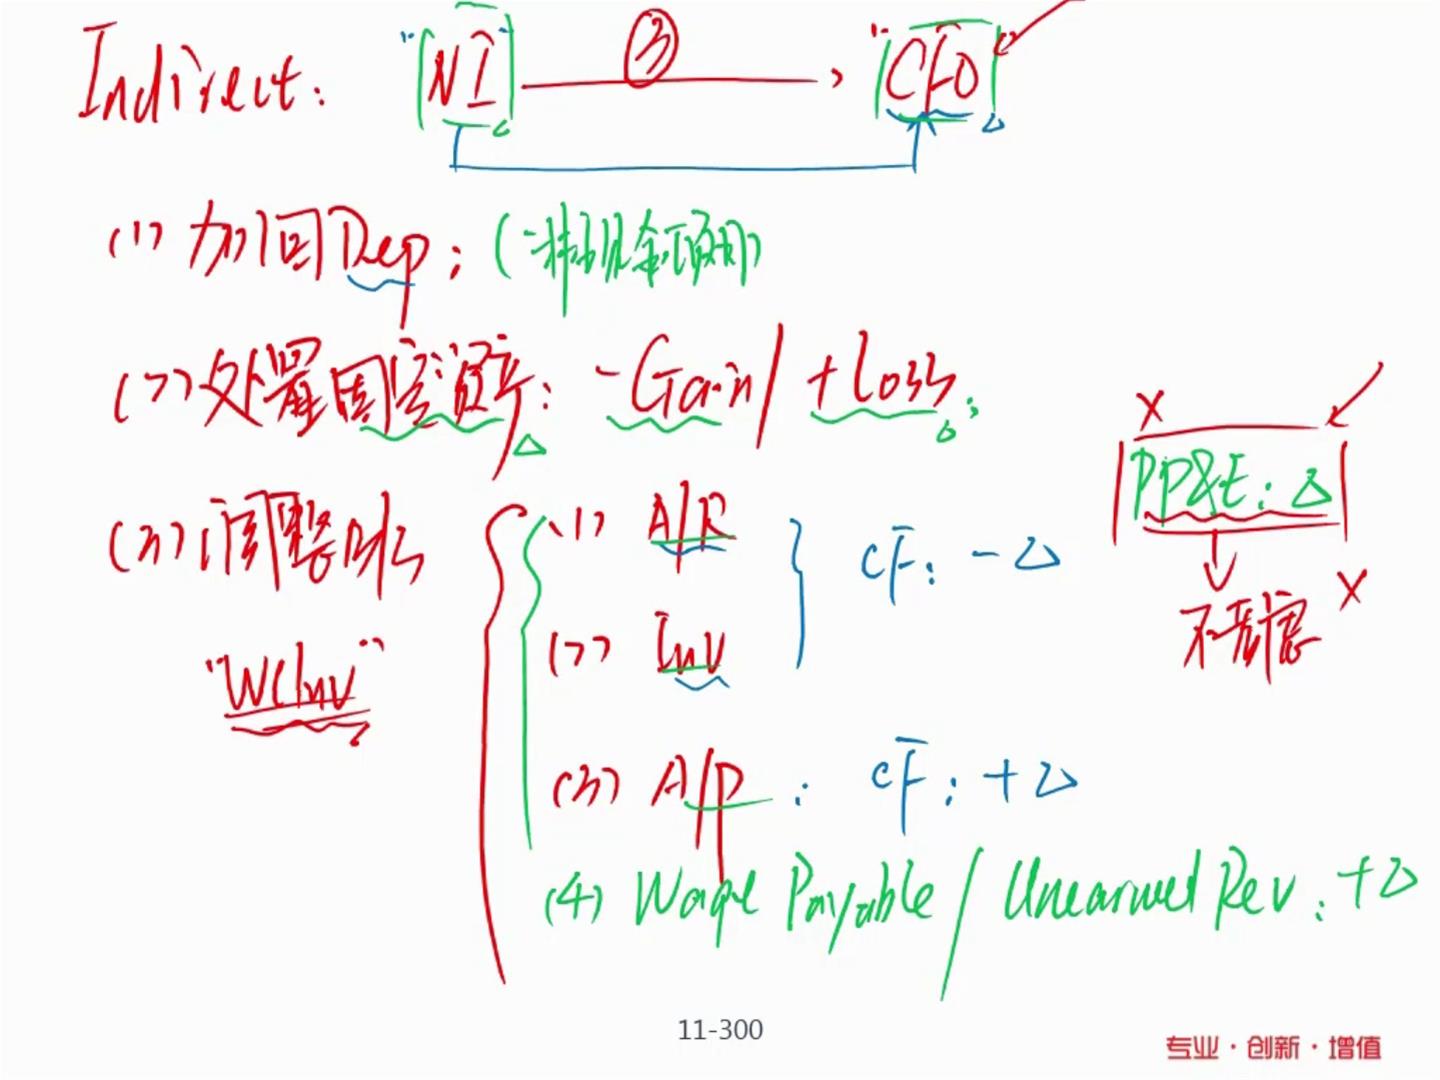 Indirect: "NI" ③ "CFO"
(1) 加回Dep: (非现金项目)
(2) 处置固定资产: -Gain / +Loss;
X
PP&E: Δ
(3) 调整 (1) A/R CF: -Δ
不考虑 X
"WCInv" (2) Inv
(3) A/P : CF: +Δ
(4) Wage Payable / Unearned Rev: +Δ
11-300
专业·创新·增值